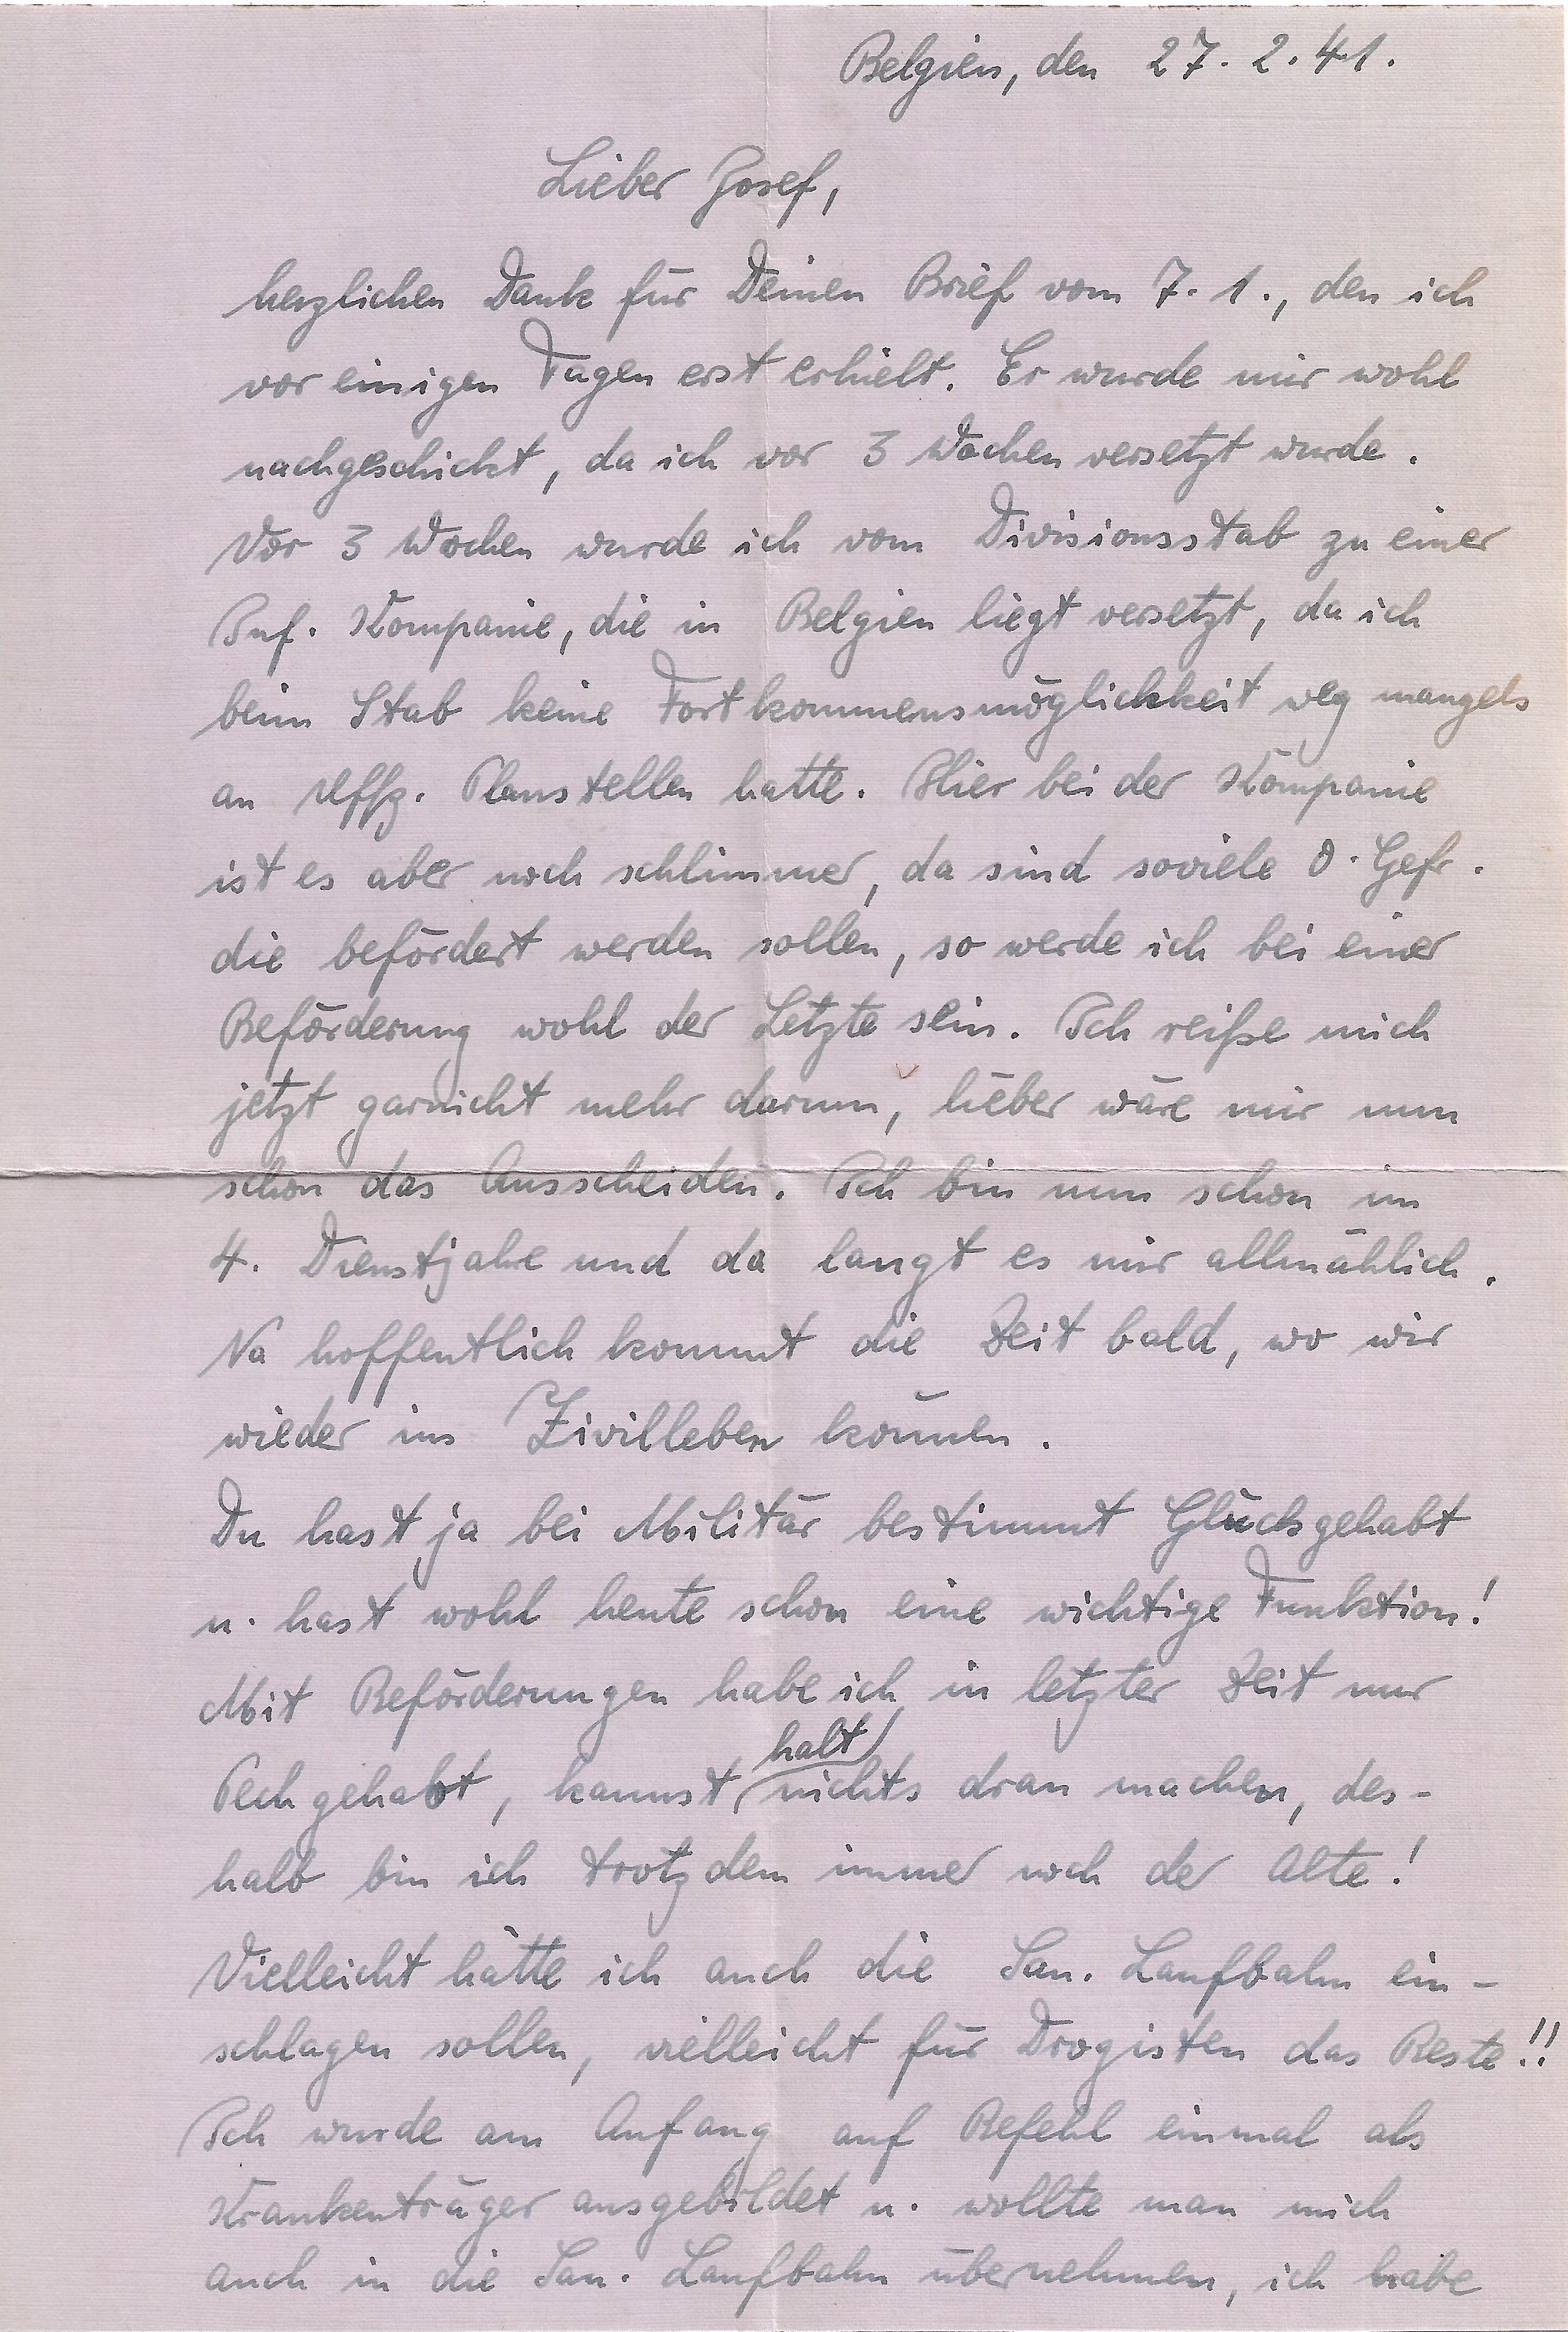 Belgien, den 27. 2. 41.
Lieber Josef,
herzlichen Dank für Deinen Brief vom 7. 1., den ich
vor einigen Tagen erst erhielt. Er wurde mir wohl
nachgeschickt, da ich vor 3 Wochen versetzt wurde.
Vor 3 Wochen wurde ich vom Divisionsstab zu einer
Inf. Kompanie, die in Belgien liegt versetzt, da ich
beim Stab keine Fortkommensmöglichkeit weg mangels
an Uffz. Planstellen hatte. Hier bei der Kompanie
ist es aber noch schlimmer, da sind soviele O. Gefr.
die befördert werden sollen, so werde ich bei einer
Beförderung wohl der Letzte sein. Ich reiße mich
jetzt garnicht mehr darum, lieber wäre mir nun
schon das Ausscheiden. Ich bin nun schon im
4. Dienstjahre und da langt es mir allmählich.
Na hoffentlich kommt die Zeit bald, wo wir
wieder ins Zivilleben können.
Du hast ja bei Militär bestimmt Glück gehabt
u. hast wohl heute schon eine wichtige Funktion!
Mit Beförderungen habe ich in letzter Zeit nur
halt
Pech gehabt, kannst nichts dran machen, des-
halb bin ich trotzdem immer noch der Alte!
Vielleicht hätte ich auch die San. Laufbahn ein-
schlagen sollen, vielleicht für Drogisten das Beste!!
Ich wurde am Anfang auf Befehl einmal als
Krankenträger ausgebildet u. wollte man mich
auch in die San. Laufbahn übernehmen, ich habe